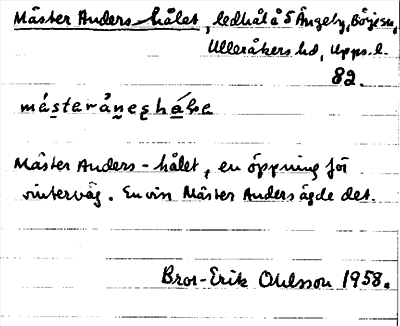 Mäster Anders-hålet, ledhål å S Ängeby, Börje sn,
Ulleråkers hd, Upps. l.
82.
Mäster Anders-hålet, en öppning för
vinterväg. En viss Mäster Anders ägde det.
Bror-Erik Ohlsson 1958.